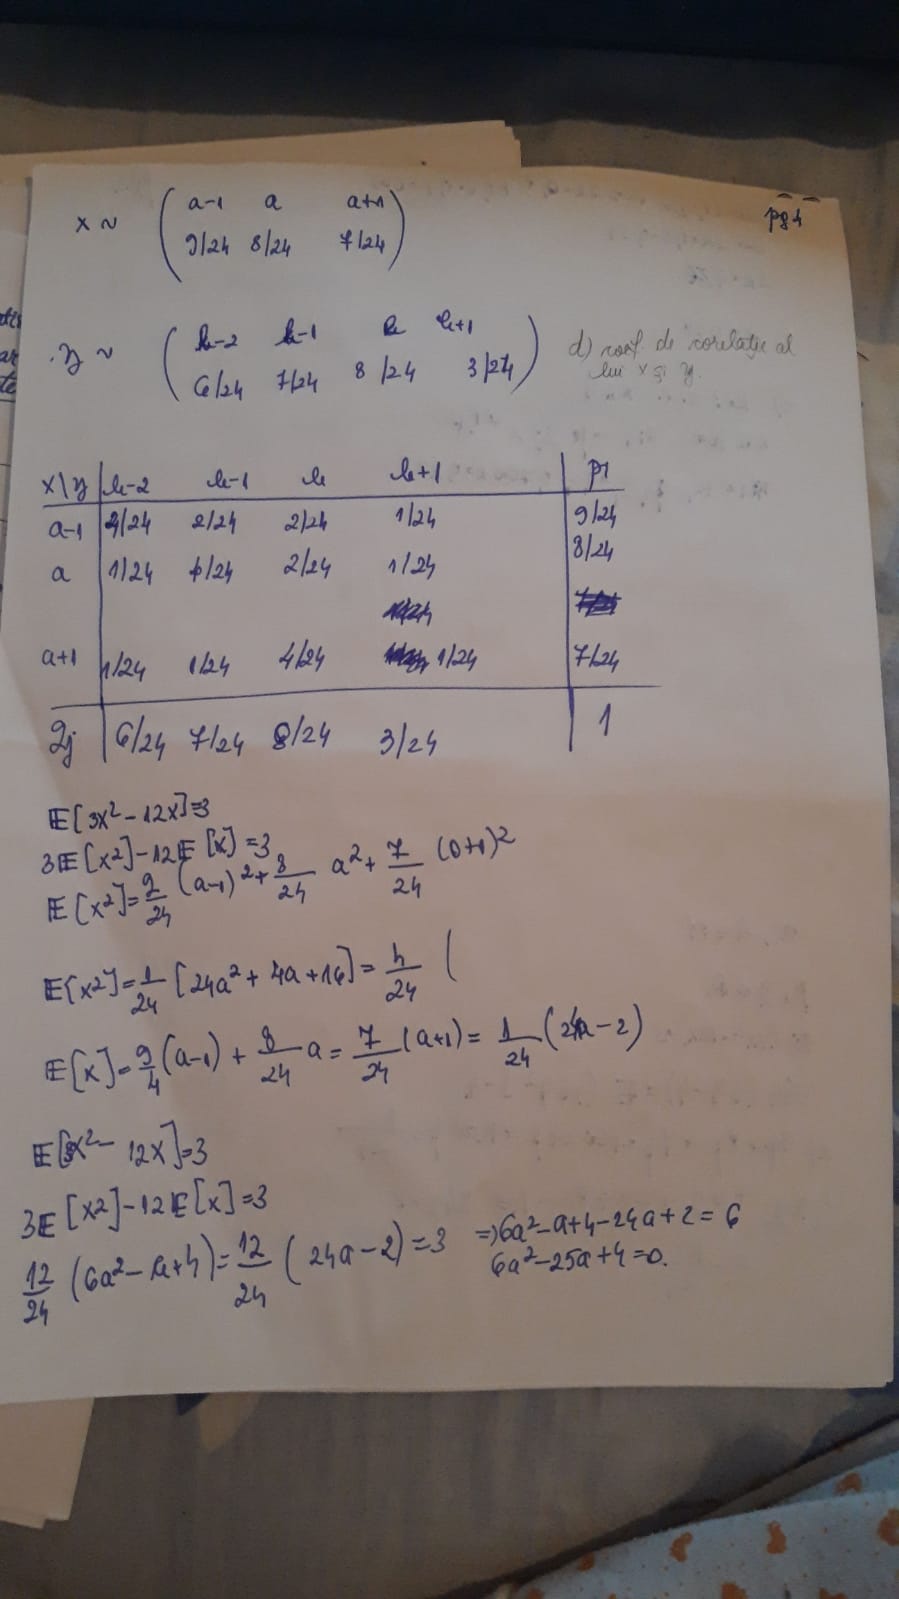 pg 4
X ~ ( a-1 a a+1
9/24 8/24 7/24 )
y ~ ( b-2 b-1 b b+1
6/24 7/24 8/24 3/24 )
d) coef de corelație al
lui x și y.
X\y b-2 b-1 b b+1 pi
a-1 4/24 2/24 2/24 1/24 9/24
a 1/24 4/24 2/24 1/24 8/24
a+1 1/24 1/24 4/24 1/24 7/24
2j 6/24 7/24 8/24 3/24 1
E[3x²-12x]=3
3E[x²]-12E[x]=3
E[x²]=9/24 (a-1)²+8/24 a²+7/24 (a+1)²
E[x²]=1/24 [24a²+4a+16]=4/24 (
E[x]=9/4 (a-1)+8/24 a=7/24 (a+1)=1/24 (24a-2)
E[3x²-12x]=3
3E[x²]-12E[x]=3
12/24 (6a²-a+4)=12/24 (24a-2)=3 =>6a²-a+4-24a+2=6
6a²-25a+4=0.